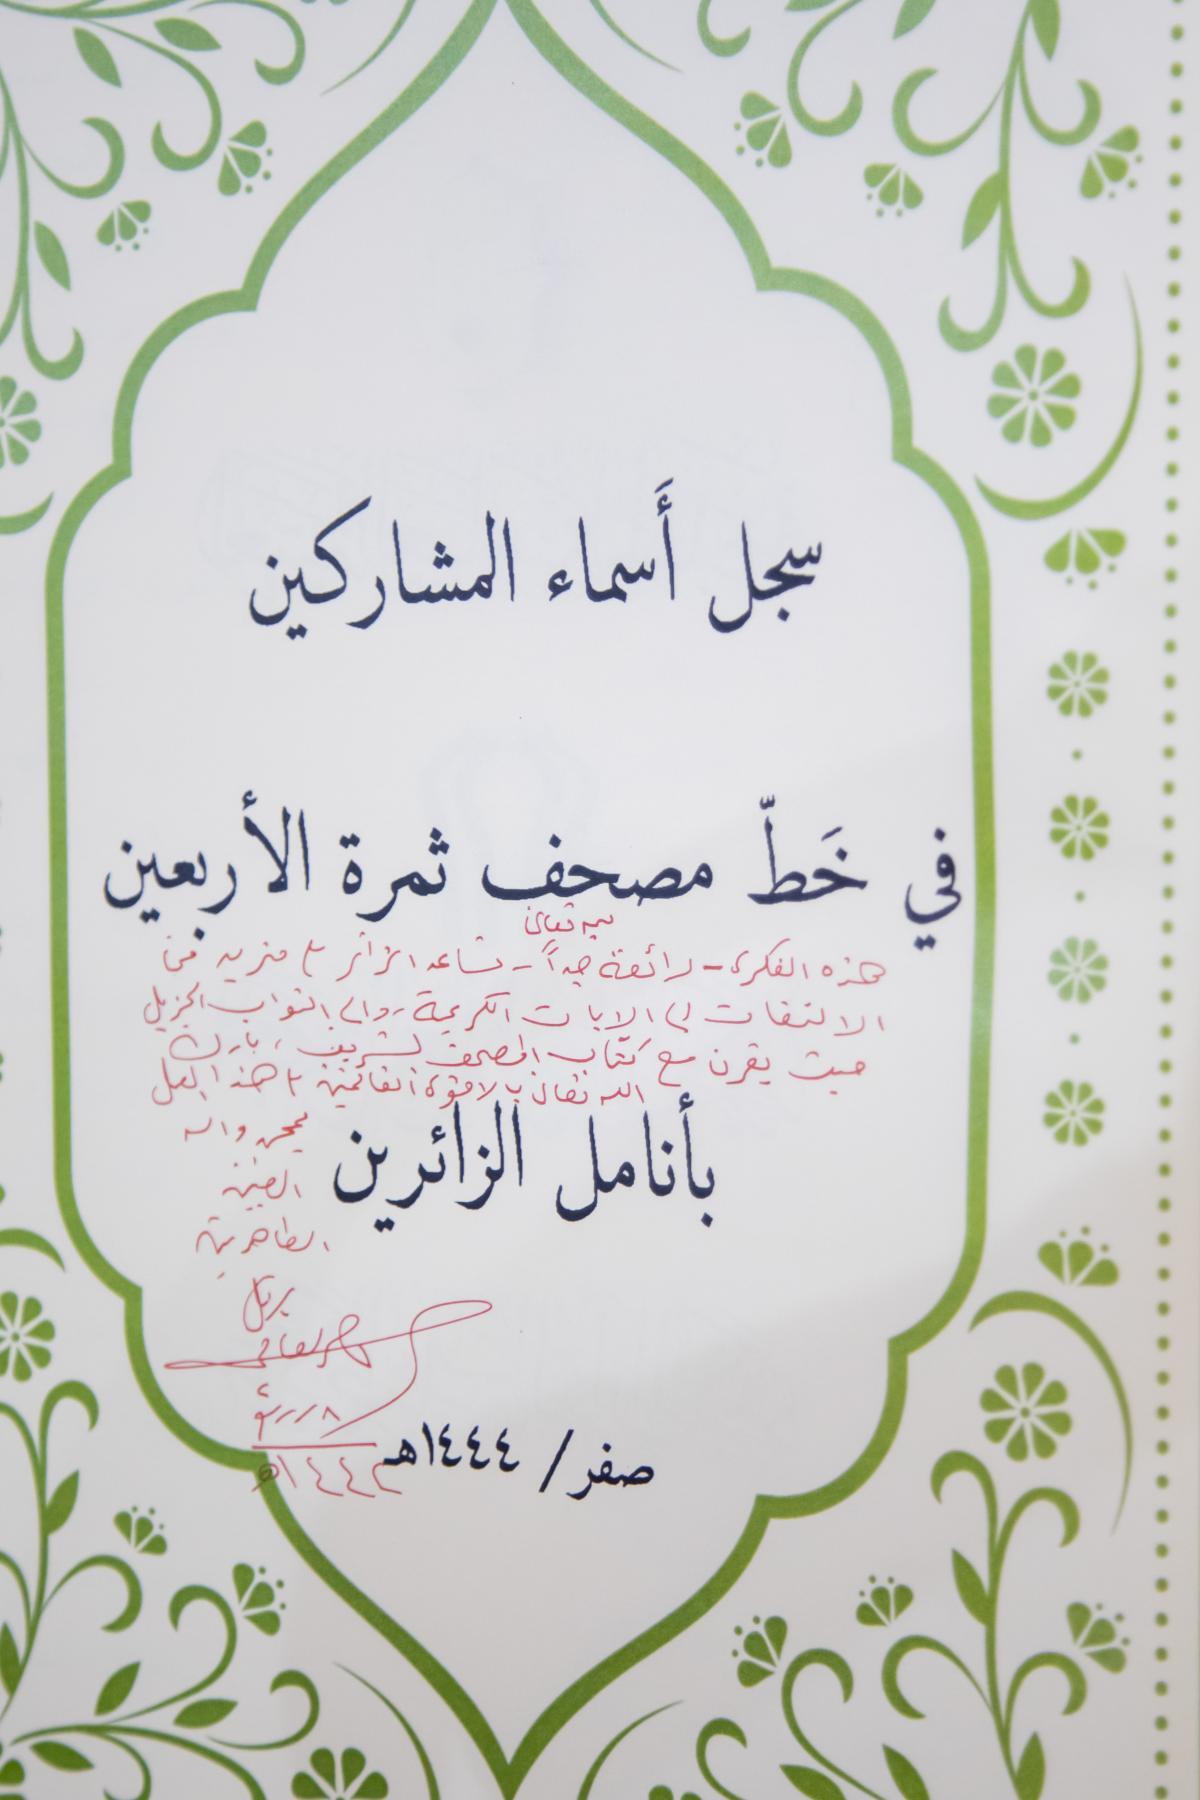 سجل أَسماء المشاركين
في خَطّ مصحف ثمرة الأربعين
بسمه تعالى
هذه الفكرة - رائعة جداً - تساعد الزائر على مزيد من
الالتفات الى الايات الكريمة والى الثواب الجزيل
حيث يقرن مع كتاب المصحف الشريف، بارك
الله تعالى بالاخوة القائمين على هذا العمل
بمحمد واله
الطيبين
الطاهرين
بأنامل الزائرين
صفر/ ١٤٤٤هـ